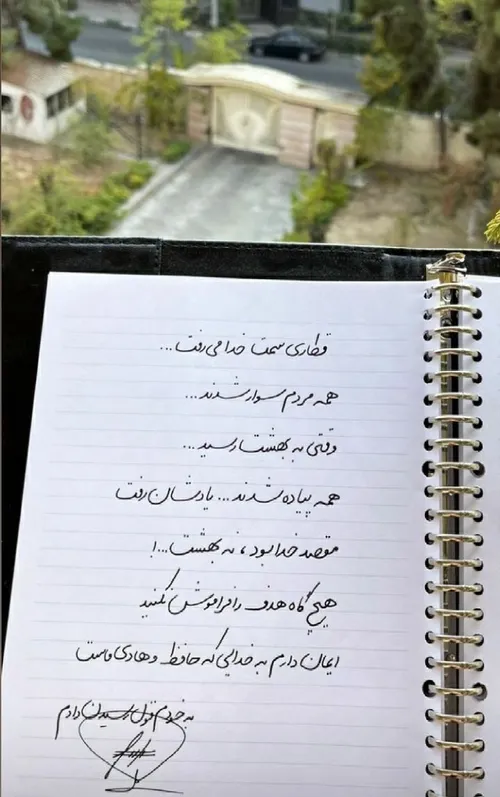 قطاری سمت خدا می رفت...
همه مردم سوار شدند...
وقتی به بهشت رسید...
همه پیاده شدند... یادشان رفت
مقصد خدا بود، نه بهشت...!
هیچ گاه هدف را فراموش نکنید
ایمان دارم به خدایی که حافظ و هادی ماست
به خودم قول رسیدن دادم